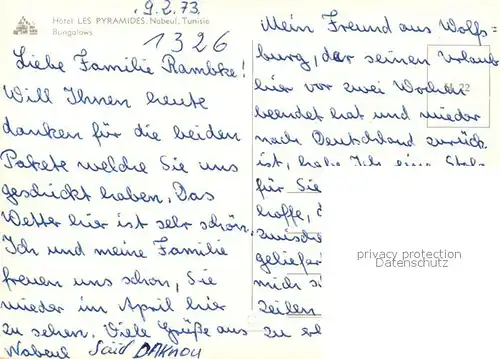 .9.2.73.
Hotel LES PYRAMIDES. Nabeul. Tunisie
Bungalows
1326
Liebe Familie Rambke!
Will Ihnen heute
danken für die beiden
Pakete welche Sie uns
geschickt haben. Das
Wetter hier ist sehr schön.
Ich und meine Familie
freuen uns schon, Sie
wieder im April hier
zu sehen. Viele Grüße aus
Nabeul Said
Mein Freund aus Wolfs=
burg, der seinen Urlaub
hier vor zwei Wochen
beendet hat und wieder
nach Deutschland zurück
ist, habe Ich eine
für Sie
hoffe,
zwische
geliefer
mich
zeilen
zu
privacy protection
Datenschutz